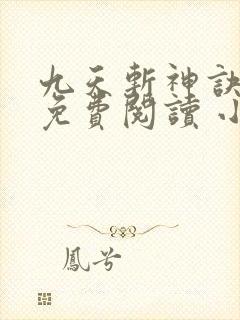 九天斬神訣
免費閱讀 小
鳳兮